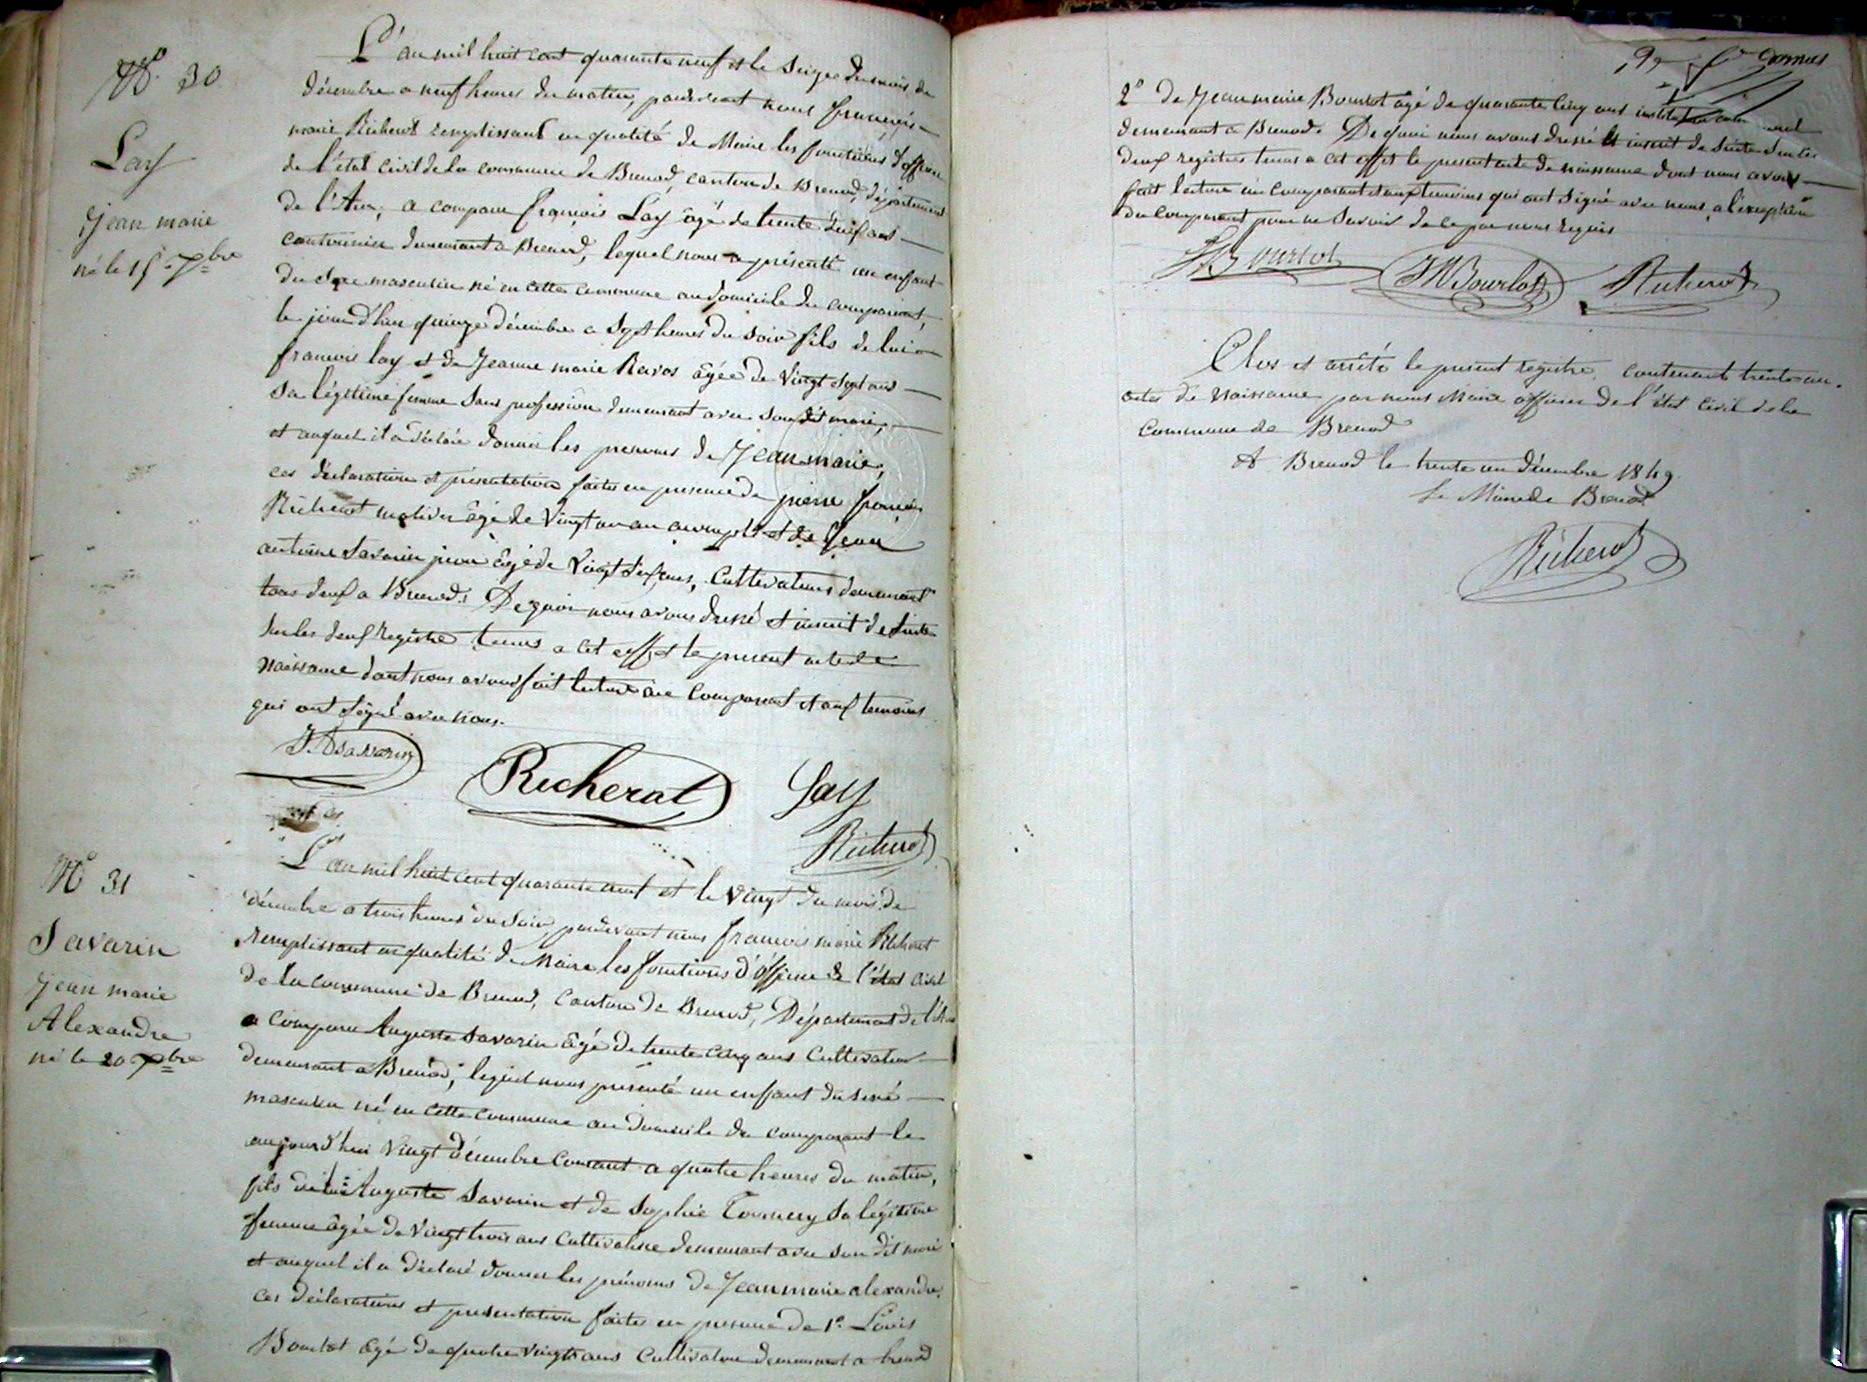 N° 30
Lay
Jean marie
né le 15 Xbre
L'an mil huit cent quarante neuf et le seize du mois de
décembre a neuf heures du matin, pardevant nous françois
marie Richerot remplissant en qualité de Maire les fonctions d'officier
de l'état civil de la commune de Brenod, canton de Brenod, département
de l'Ain, a comparu françois Lay âgé de trente deux ans
cantonnier demeurant a Brenod, lequel nous a présenté un enfant
du sexe masculin né en cette commune au domicile du comparant,
le jour d'hier quinze décembre a sept heures du soir fils de lui
francois lay et de Jeanne marie Ravos âgée de vingt sept ans
sa légitime femme sans profession demeurant avec son dit mari,
et auquel il a déclaré donner les prenoms de Jean marie,
ces déclaration et présentation faites en presence de pierre françois
Richerot âgé de vingt un an accomplis et de Jean
antoine Savarin âgé de vingt six ans, Cultivateurs demeurant
tous deux a Brenod. De quoi nous avons dressé et inscrit de suite
sur les deux registre tenus a cet effet le present acte de
naissance dont nous avons fait lecture au Comparant et aux temoins
qui ont signé avec nous.
J. A Savarin Richerot Lay
Richerot
N° 31
Savarin
Jean marie
Alexandre
né le 20 Xbre
L'an mil huit cent quarante neuf et le vingt du mois de
décembre a trois heures du soir, pardevant nous francois marie Richerot
remplissant en qualité de Maire les fonctions d'officier de l'état civil
de la commune de Brenod, canton de Brenod, Département de l'Ain
a comparu Auguste Savarin âgé de trente cinq ans Cultivateur
demeurant a Brenod, lequel nous présenté un enfant du sexe
masculin né en cette commune au domicile du comparant le
aujourd'hui vingt décembre courant a quatre heures du matin,
fils de lui Auguste Savarin et de Sophie Tournery sa légitime
femme âgée de vingt trois ans Cultivatrice demeurant avec son dit mari
et auquel il a déclaré donner les prénoms de Jean marie alexandre.
ces déclarations et presentation faites en presence de 1° Louis
Bourlot âgé de quatre vingts ans Cultivateur demeurant a brenod
2° de Jean marie Bourlot âgé de quarante cinq ans instituteur
demeurant a Brenod. De quoi nous avons dressé et inscrit de suite sur les
deux registres tenus a cet effet le present acte de naissance dont nous avons
fait lecture au Comparant et aux temoins qui ont signé avec nous, a l'exception
du Comparant pour ne savoir de ce par nous requis
Bourlot JM Bourlot Richerot
Clos et arrêté le present registre contenant trente un
actes de naissance par nous Maire officier de l'état civil de la
commune de Brenod
A Brenod le trente un décembre 1849
Le Maire de Brenod
Richerot